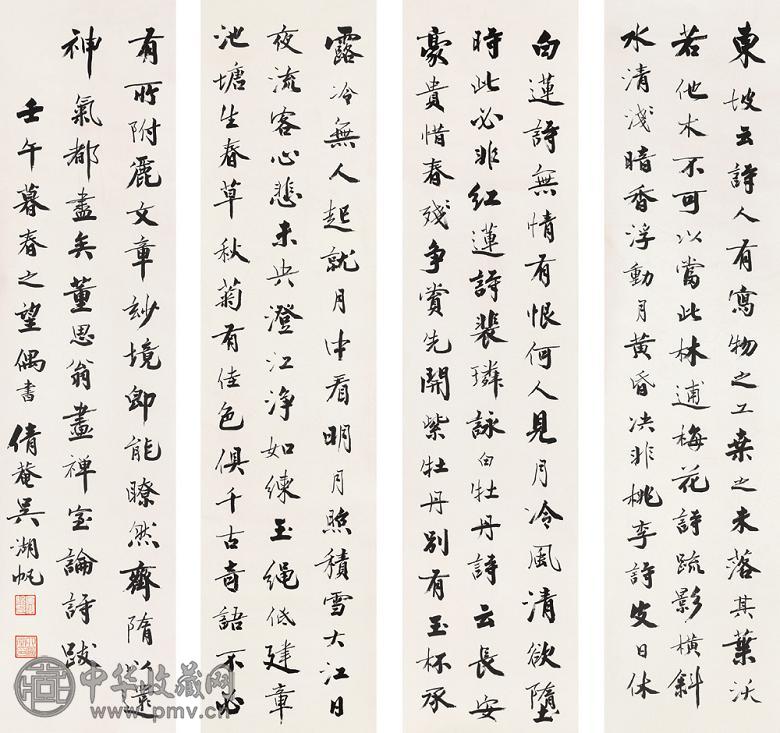 東坡云詩人有寫物之工桒之未落其葉沃
若他木不可以當此林逋梅花詩疏影橫斜
水清淺暗香浮動月黄昏決非桃李詩皮日休
白蓮詩無情有恨何人見月冷風清欲墮
時此必非紅蓮詩裴璘詠白牡丹詩云長安
豪貴惜春殘争賞先開紫牡丹别有玉杯承
露冷無人起就月中看明月照積雪大江日
夜流客心悲未央澄江淨如練玉繩低建章
池塘生春草秋菊有佳色俱千古奇語不必
有所附麗文章妙境即能瞭然齊隋以還
神氣都盡矣董思翁畫禅室論詩跋
壬午暮春之望偶書倩菴吴湖帆
中华收藏网
www.pmv.cn